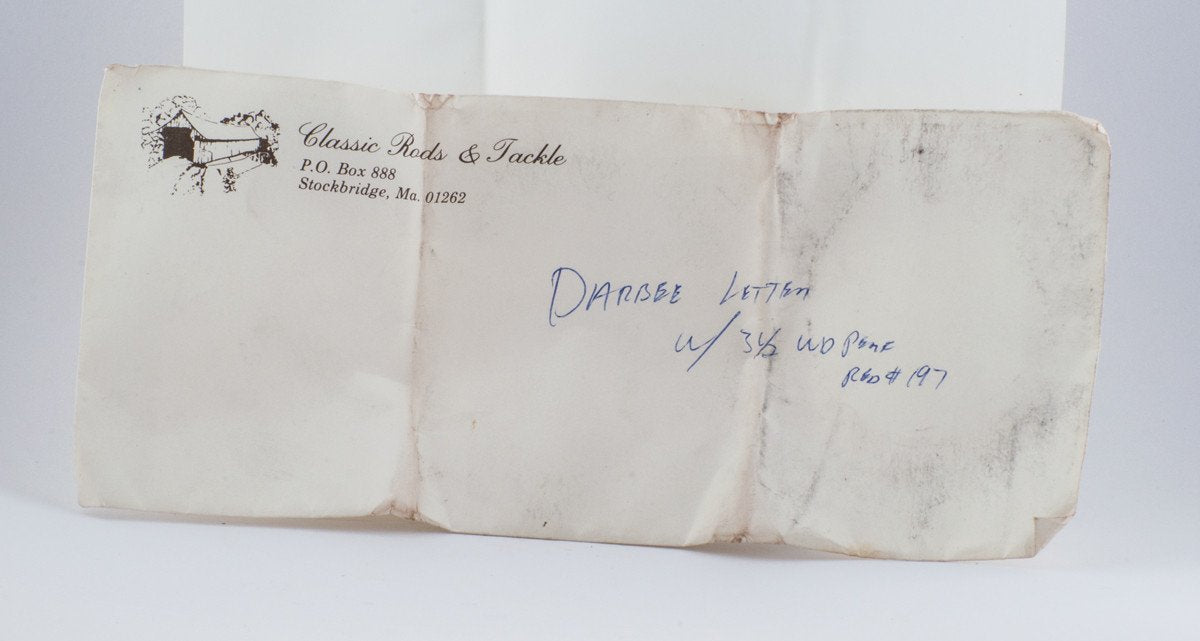 Classic Rods & Tackle
P.O. Box 888
Stockbridge, Ma. 01262
DARBEE LETTER
W/ 3½
#197